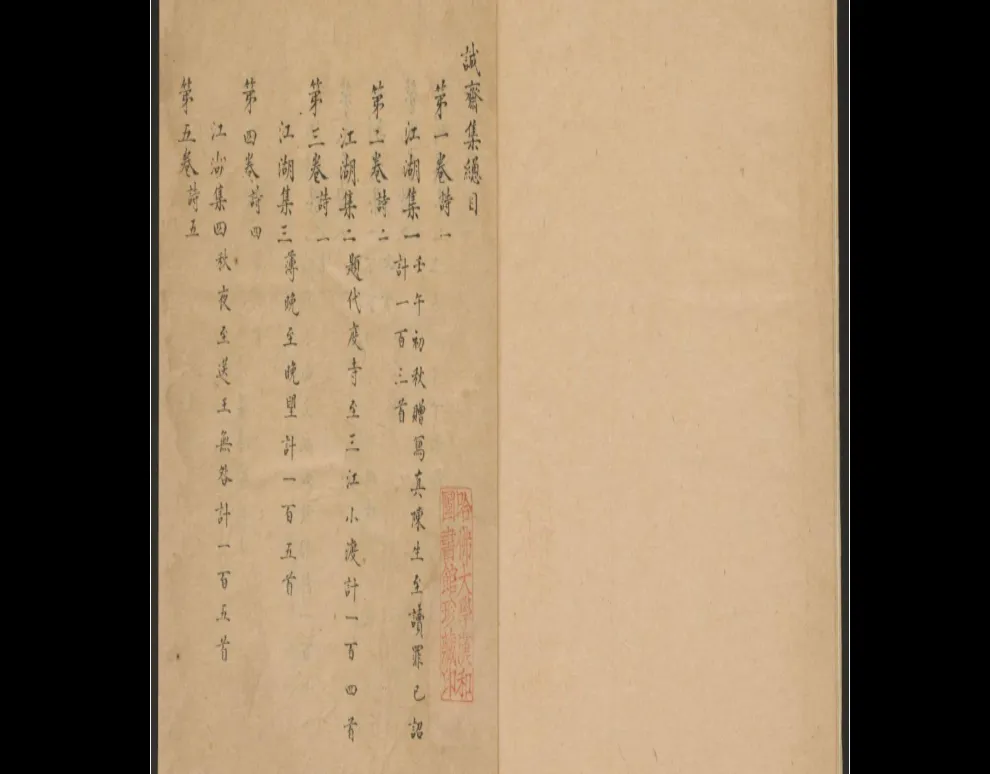 誠齋集總目
第一卷詩一
江湖集一壬午初秋贈寫真陳生至讀罪己詔
計一百三首
第二卷詩二
江湖集二題代度寺至三江小渡計一百四首
第三卷詩一
江湖集三薄晚至晚望計一百五首
第四卷詩四
江湖集四秋夜至送王無咎計一百五首
第五卷詩五
哈佛大學漢和
圖書館珍藏印